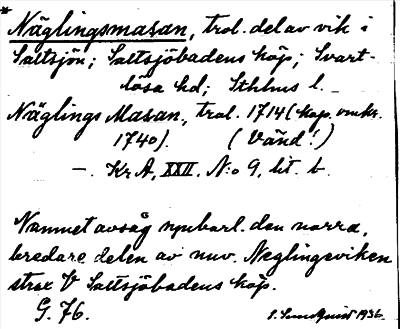 * Näglingsmasan, trol. del av vik i
Saltsjön; Saltsjöbadens köp; Svart-
lösa hd; Sthlms l. –
Näglings Masan, trol. 1714 (kop. omkr.
1740). (Vänd!)
–. Kr A, XXII. N:o 9, lit. b.
Namnet avsåg uppenbarl. den norra,
bredare delen av nuv. Neglingeviken
strax V Saltsjöbadens köp.
G. 76. S. Sundquist 1936.